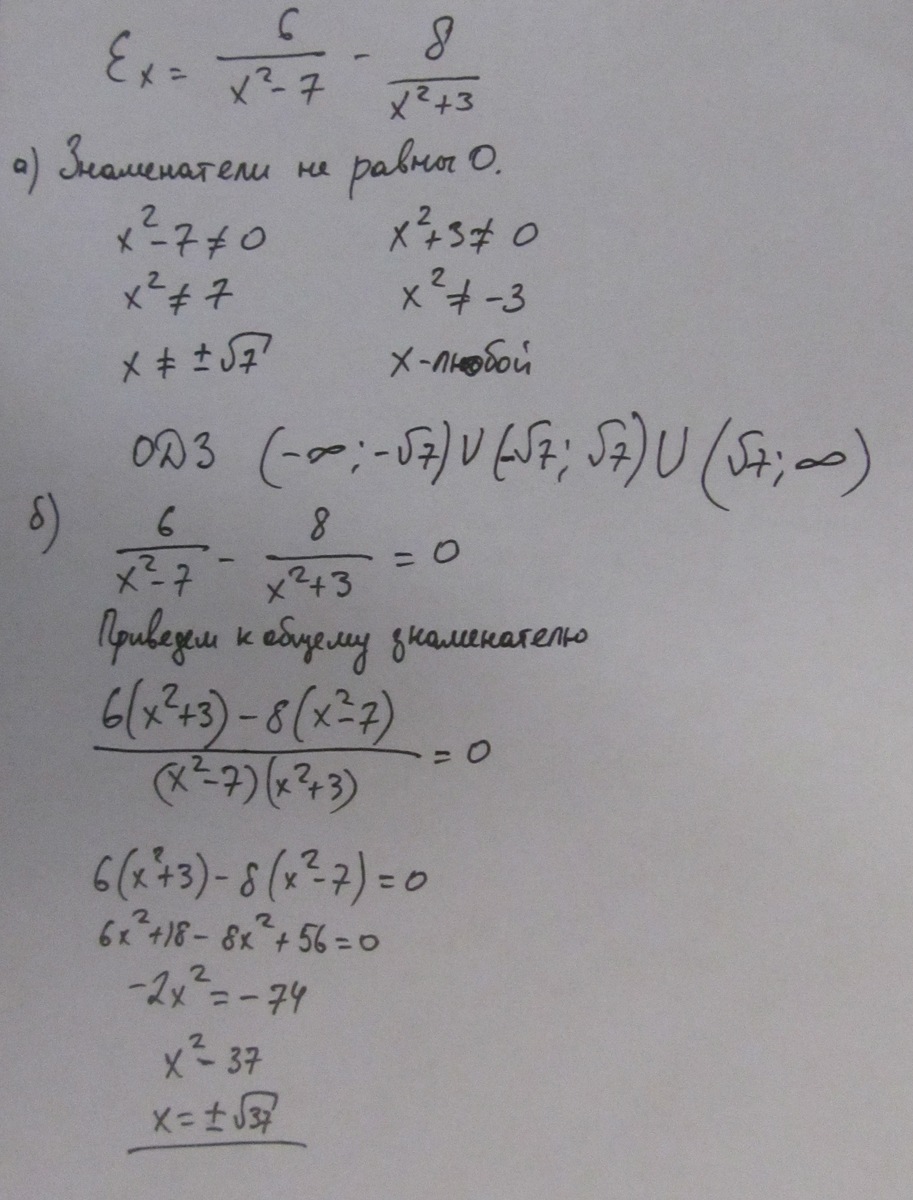 Ɛx = 6/(x²-7) - 8/(x²+3)
а) Знаменатели не равны 0.
x²-7≠0 x²+3≠0
x²≠7 x²≠-3
x≠±√7 x-любой
ОДЗ (-∞;-√7)∪(-√7;√7)∪(√7;∞)
б) 6/(x²-7) - 8/(x²+3) = 0
Приведем к общему знаменателю
(6(x²+3)-8(x²-7))/((x²-7)(x²+3)) = 0
6(x²+3)-8(x²-7)=0
6x²+18-8x²+56=0
-2x²=-74
x²-37
x=±√37